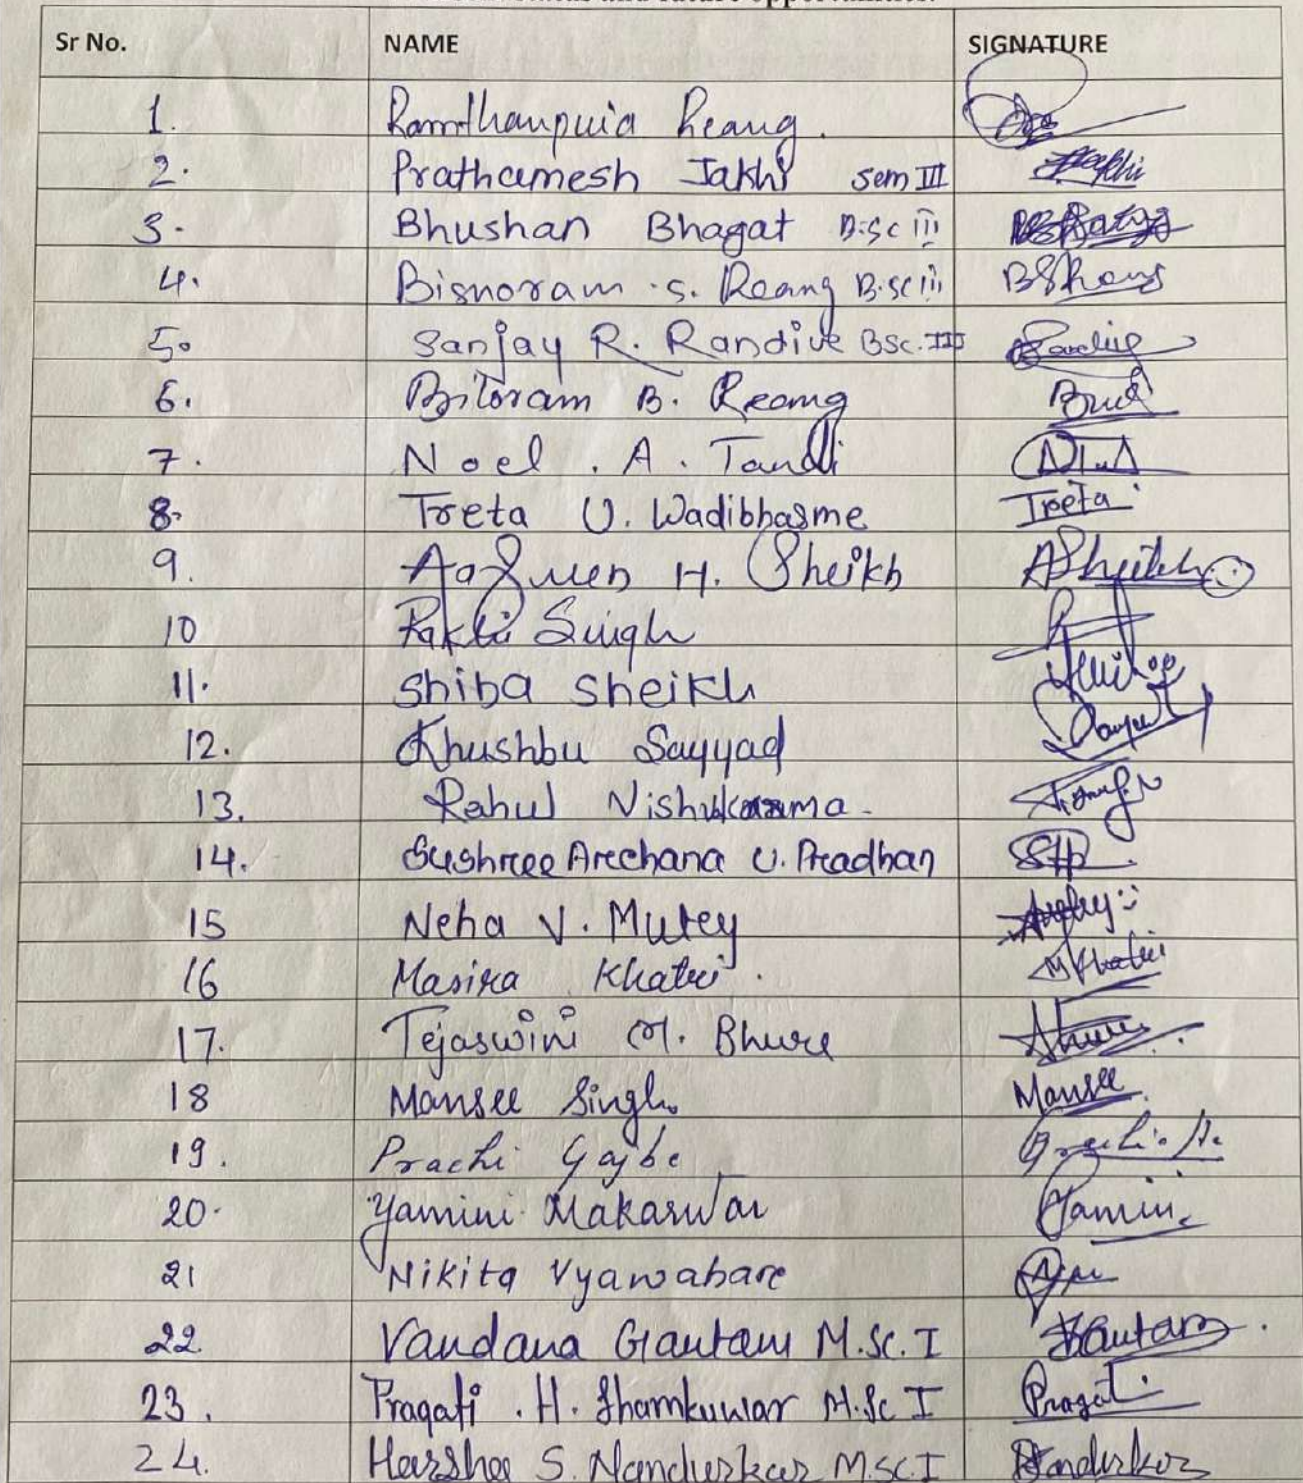 and future opportunities.
Sr No. NAME SIGNATURE
1. Ramthanpuia Reang.
2. Prathamesh Jakhi sem III
3. Bhushan Bhagat B.sc iii
4. Bisnoram .s. Reang B.sc iii BSReang
5. Sanjay R. Randive BSc.III
6. Bitoram B. Reang
7. Noel . A . Tandi
8. Treta U. Wadibhasme Treta
9. H. Sheikh ASheikh
10 Rakhi Singh
11. Shiba Sheikh
12. Khushbu Sayyad
13. Rahul Vishwakarma -
14. Sushree Archana U. Pradhan
15 Neha V. Mutey
16 Masira Khatri . MKhatri
17. Tejaswini M. Bhure
18 Mansee Singh. Mansee
19. Prachi Gajbe
20. Yamini Makarwar Yamini
21 Nikita Vyawahare
22. Vandana Gautam M.Sc. I Gautam .
23. Pragati . H. Shamkuwar M.Sc I Pragati
24. Harsha S. Nandurkar M.SC.I Nandurkar